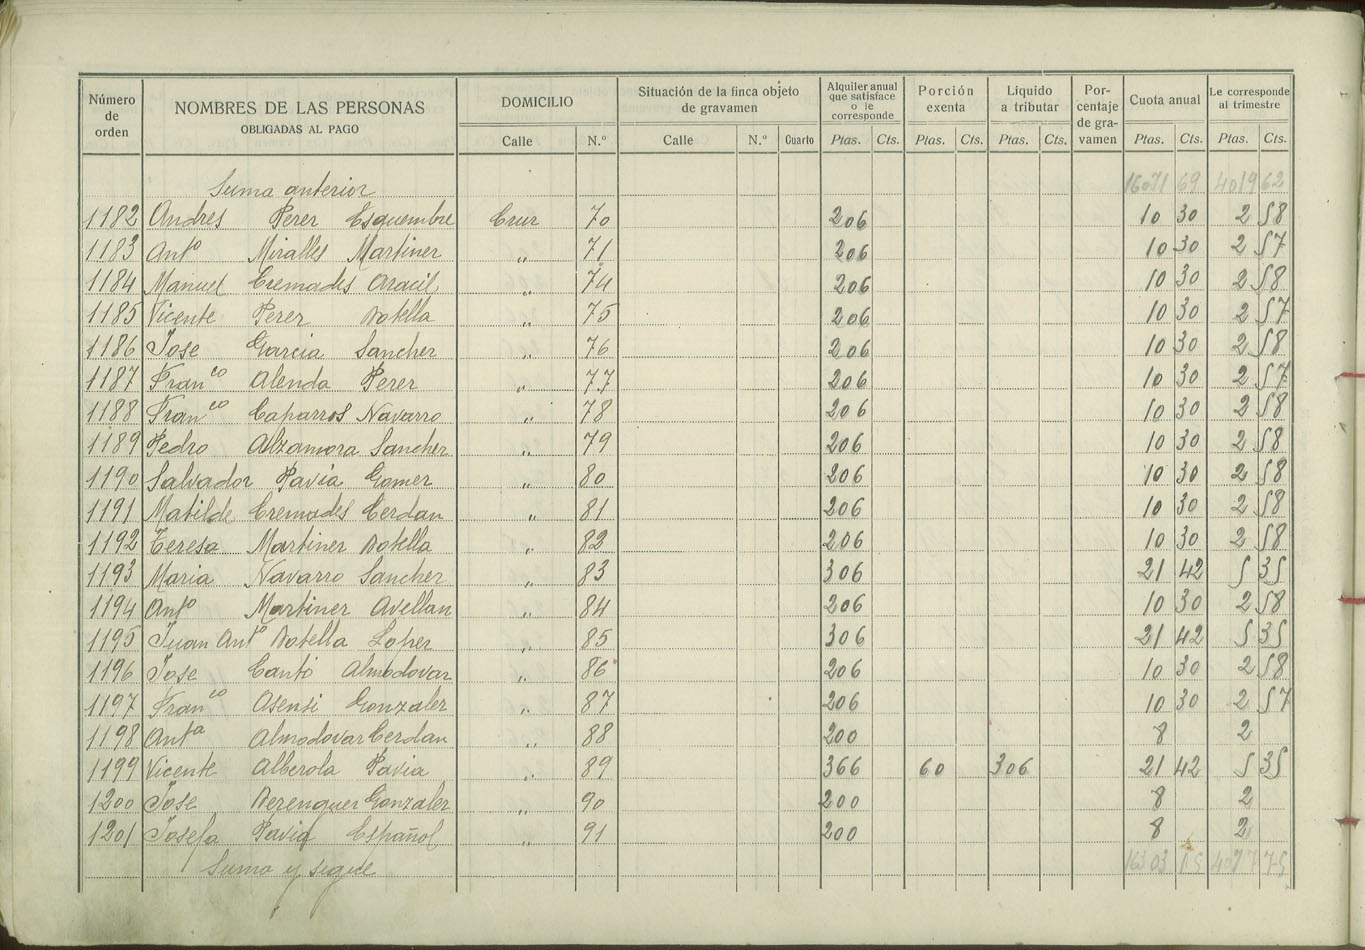 Número de orden NOMBRES DE LAS PERSONAS OBLIGADAS AL PAGO DOMICILIO Situación de la finca objeto de gravamen Alquiler anual que satisface o le corresponde Porción exenta Líquido a tributar Por-centaje de gra-vamen Cuota anual Le corresponde al trimestre
Calle N.º Calle N.º Cuarto Ptas. Cts. Ptas. Cts. Ptas. Cts. Ptas. Cts. Ptas. Cts.
Suma anterior 16071 69 4019 62
1182 Andres Perez Esquembre Cruz 70 206 10 30 2 58
1183 Antº Miralles Martinez „ 71 206 10 30 2 57
1184 Manuel Cremades Aracil „ 74 206 10 30 2 58
1185 Vicente Perez Botella 75 206 10 30 2 57
1186 Jose Garcia Sanchez „ 76 206 10 30 2 58
1187 Franco Alenda Perez „ 77 206 10 30 2 57
1188 Franco Caparros Navarro „ 78 206 10 30 2 58
1189 Pedro Alzamora Sanchez „ 79 206 10 30 2 58
1190 Salvador Pavia Gomez „ 80 206 10 30 2 58
1191 Matilde Cremades Cerdan „ 81 206 10 30 2 58
1192 Teresa Martinez Botella „ 82 206 10 30 2 58
1193 Maria Navarro Sanchez „ 83 306 21 42 5 35
1194 Antº Martinez Avellan „ 84 206 10 30 2 58
1195 Juan Antº Botella Lopez „ 85 306 21 42 5 35
1196 Jose Cantó Almodovar „ 86 206 10 30 2 58
1197 Franco Asensi Gonzalez „ 87 206 10 30 2 57
1198 Antª Almodovar Cerdan „ 88 200 8 2
1199 Vicente Alberola Pavia „ 89 366 60 306 21 42 5 35
1200 Jose Berenguer Gonzalez „ 90 200 8 2
1201 Josefa Pavia Español „ 91 200 8 2
Suma y sigue 16303 15 4077 75